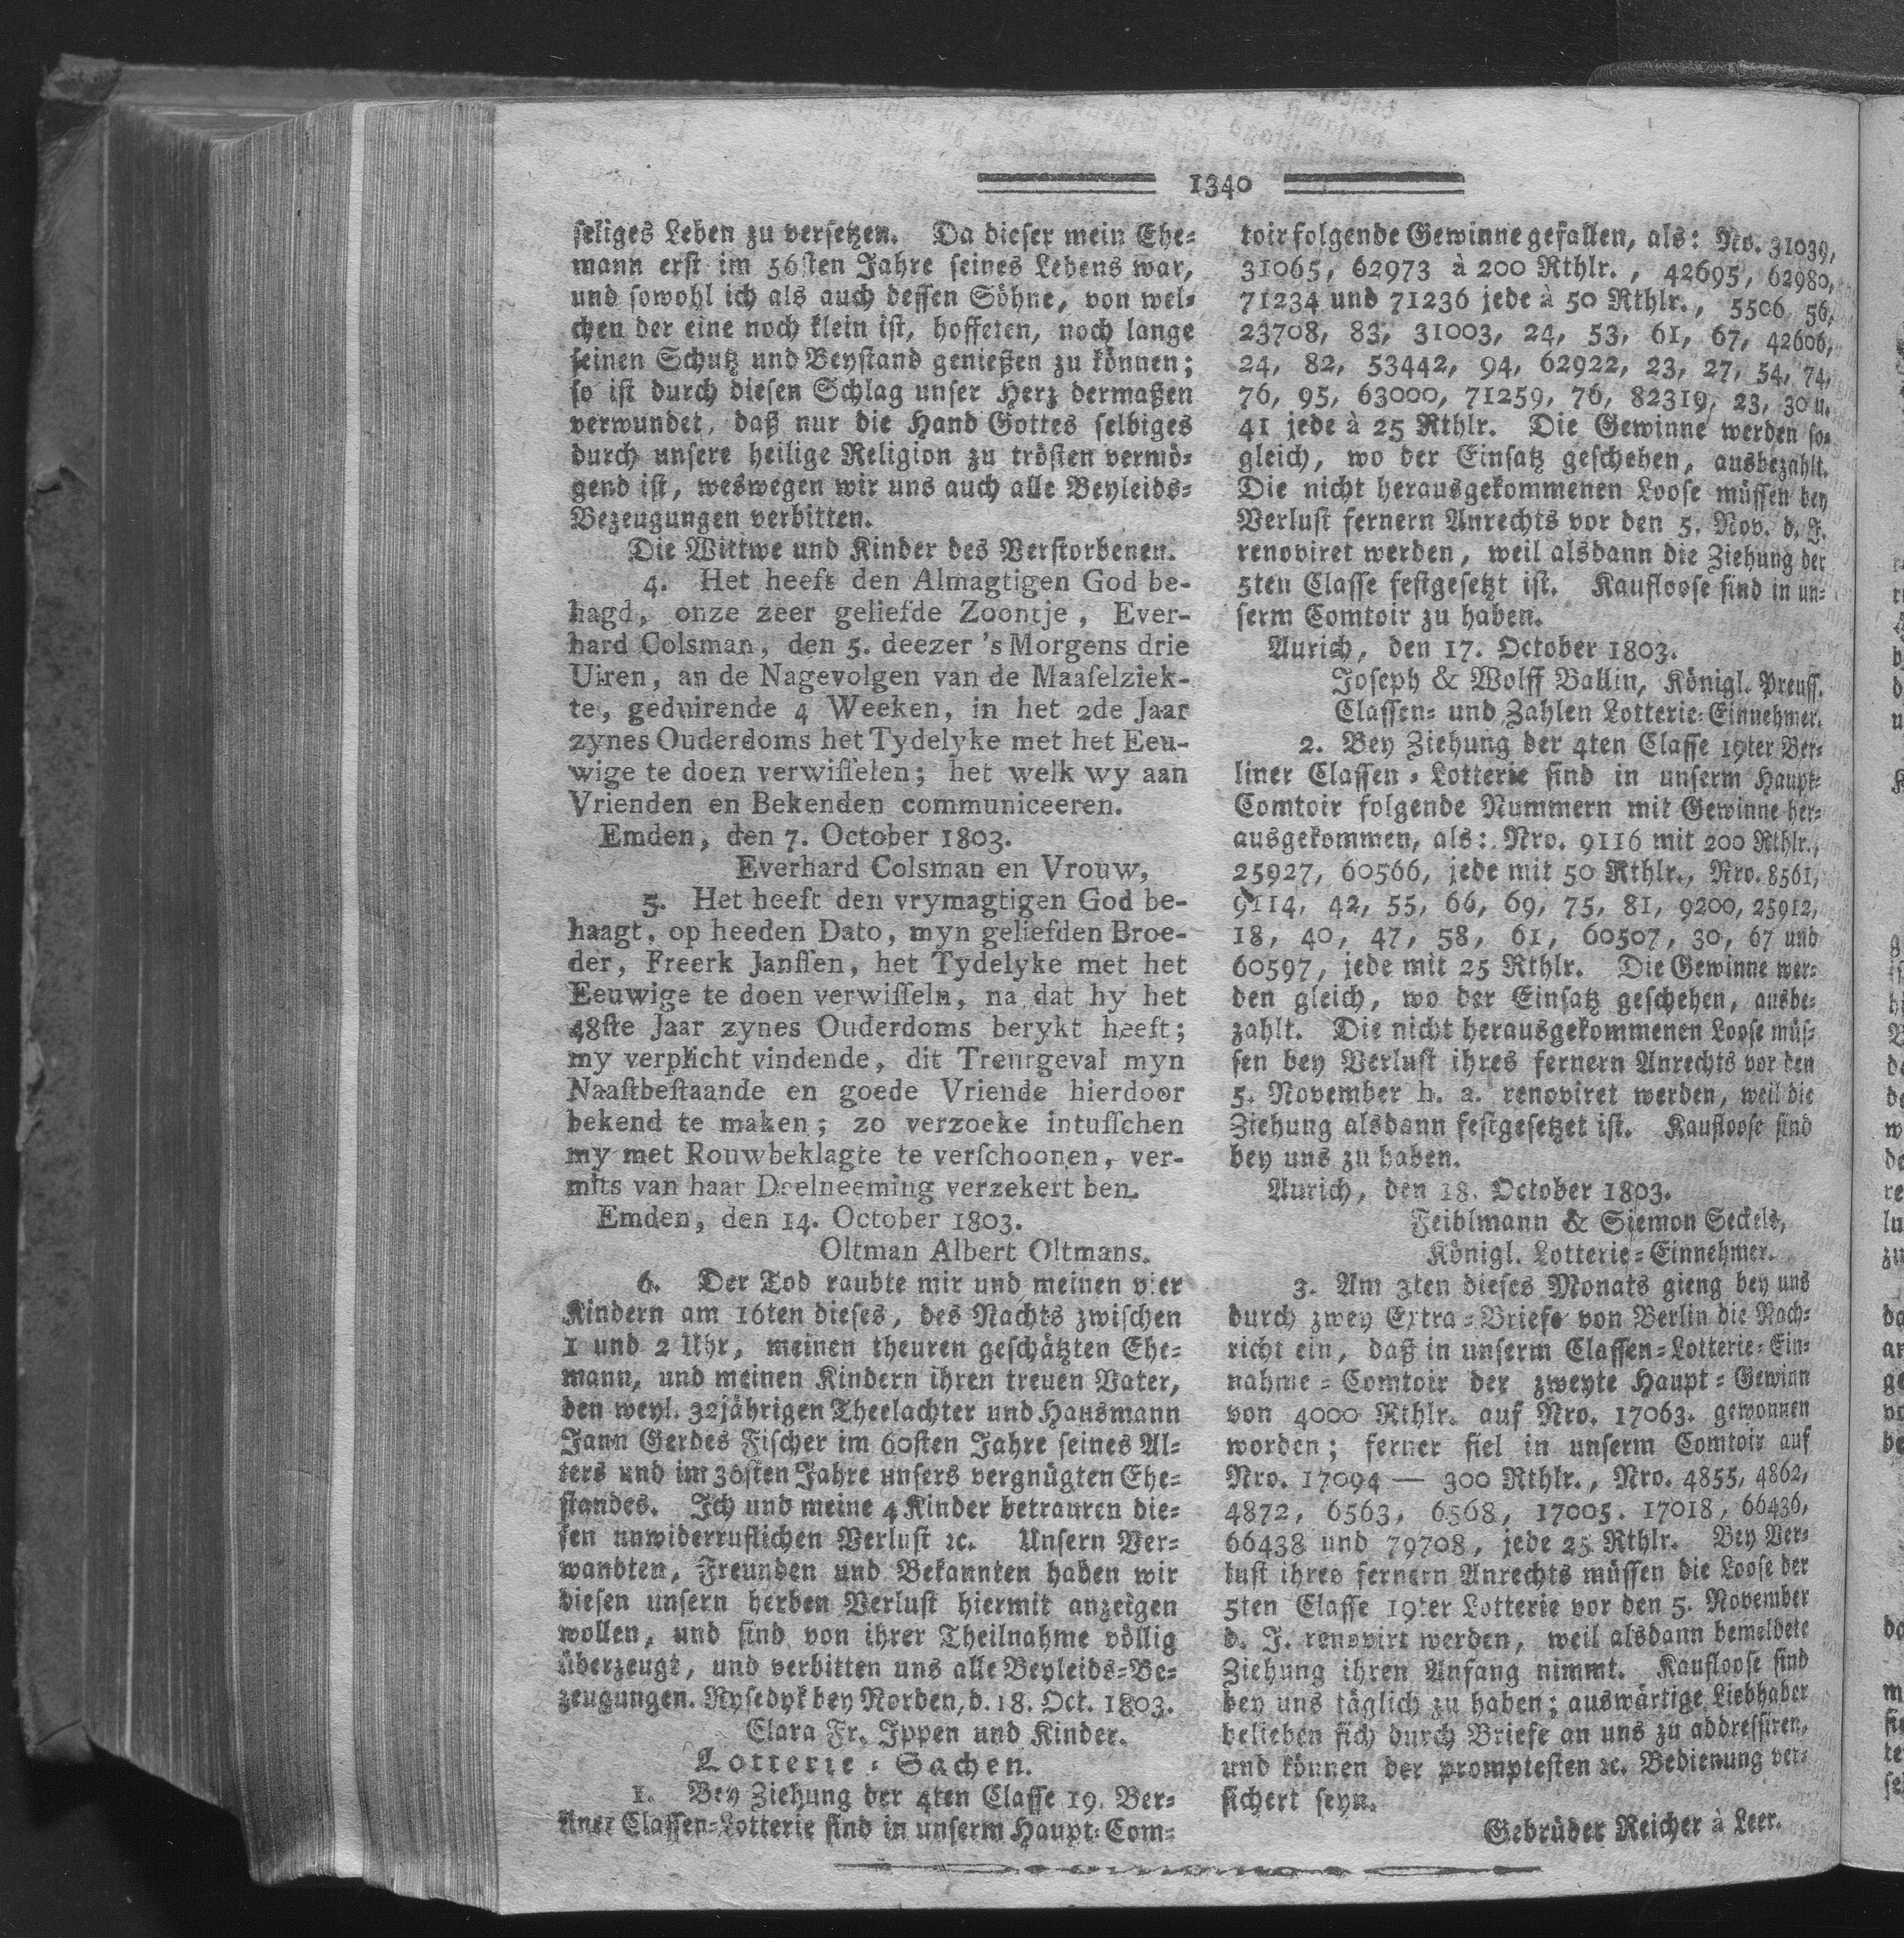 1340
seliges Leben zu versetzen. Da dieser mein Ehe-
mann erst im 56sten Jahre seines Lebens war,
und sowohl ich als auch dessen Söhne, von wel-
chen der eine noch klein ist, hoffeten, noch lange
seinen Schutz und Beystand genießen zu können;
so ist durch diesen Schlag unser Herz dermaßen
verwundet, daß nur die Hand Gottes selbiges
durch unsere heilige Religion zu trösten vermö-
gend ist, weswegen wir uns auch alle Beyleids-
Bezeugungen verbitten.
Die Wittwe und Kinder des Verstorbenen.
4. Het heeft den Almagtigen God be-
hagd, onze zeer geliefde Zoontje, Ever-
hard Colsman, den 5. deezer 's Morgens drie
Uiren, an de Nagevolgen van de Maaselziek-
te, geduirende 4 Weeken, in het 2de Jaar
zynes Ouderdoms het Tydelyke met het Eeu-
wige te doen verwisselen; het welk wy aan
Vrienden en Bekenden communiceeren.
Emden, den 7. October 1803.
Everhard Colsman en Vrouw,
5. Het heeft den vrymagtigen God be-
haagt, op heeden Dato, myn geliefden Broe-
der, Freerk Janssen, het Tydelyke met het
Eeuwige te doen verwisseln, na dat hy het
48ste Jaar zynes Ouderdoms berykt heeft;
my verplicht vindende, dit Treurgeval myn
Naastbestaande en goede Vriende hierdoor
bekend te maken; zo verzoeke intusschen
my met Rouwbeklagte te verschoonen, ver-
mits van haar Deelneeming verzekert ben.
Emden, den 14. October 1803.
Oltman Albert Oltmans.
6. Der Tod raubte mir und meinen vier
Kindern am 16ten dieses, des Nachts zwischen
1 und 2 Uhr, meinen theuren geschätzten Ehe-
mann, und meinen Kindern ihren treuen Vater,
den weyl. 32jährigen Theelachter und Hausmann
Jann Gerdes Fischer im 60sten Jahre seines Al-
ters und im 30sten Jahre unsers vergnügten Ehe-
standes. Ich und meine 4 Kinder betrauren die-
sen unwiderruflichen Verlust ꝛc. Unsern Ver-
wandten, Freunden und Bekannten haben wir
diesen unsern herben Verlust hiermit anzeigen
wollen, und sind von ihrer Theilnahme völlig
überzeugt, und verbitten uns alle Beyleids-Be-
zeugungen. Nysedyk bey Norden, d. 18. Oct. 1803.
Clara Fr. Ippen und Kinder.
Lotterie-Sachen.
1. Bey Ziehung der 4ten Classe 19. Ber-
liner Classen-Lotterie sind in unserm Haupt-Com-
toir folgende Gewinne gefallen, als: No. 31039,
31065, 62973 à 200 Rthlr., 42695, 62980,
71234 und 71236 jede à 50 Rthlr., 5506, 56,
23708, 83, 31003, 24, 53, 61, 67, 42606,
24, 82, 53442, 94, 62922, 23, 27, 54, 74,
76, 95, 63000, 71259, 76, 82319, 23, 30 u.
41 jede à 25 Rthlr. Die Gewinne werden so-
gleich, wo der Einsatz geschehen, ausbezahlt.
Die nicht herausgekommenen Loose müssen bey
Verlust fernern Anrechts vor den 5. Nov. d. J.
renoviret werden, weil alsdann die Ziehung der
5ten Classe festgesetzt ist. Kaufloose sind in un-
serm Comtoir zu haben.
Aurich, den 17. October 1803.
Joseph & Wolff Ballin, Königl. Preuss.
Classen- und Zahlen Lotterie-Einnehmer.
2. Bey Ziehung der 4ten Classe 19ter Ber-
liner Classen-Lotterie sind in unserm Haupt-
Comtoir folgende Nummern mit Gewinne her-
ausgekommen, als: Nro. 9116 mit 200 Rthlr.,
25927, 60566, jede mit 50 Rthlr., Nro. 8561,
9114, 42, 55, 66, 69, 75, 81, 9200, 25912,
18, 40, 47, 58, 61, 60507, 30, 67 und
60597, jede mit 25 Rthlr. Die Gewinne wer-
den gleich, wo der Einsatz geschehen, ausbe-
zahlt. Die nicht herausgekommenen Loose müs-
sen bey Verlust ihres fernern Anrechts vor den
5. November h. a. renoviret werden, weil die
Ziehung alsdann festgesetzet ist. Kaufloose sind
bey uns zu haben.
Aurich, den 18. October 1803.
Feiblmann & Siemon Seckels,
Königl. Lotterie-Einnehmer.
3. Am 3ten dieses Monats gieng bey uns
durch zwey Extra-Briefe von Berlin die Nach-
richt ein, daß in unserm Classen-Lotterie-Ein-
nahme-Comtoir der zweyte Haupt-Gewinn
von 4000 Rthlr. auf Nro. 17063. gewonnen
worden; ferner fiel in unserm Comtoir auf
Nro. 17094 — 300 Rthlr., Nro. 4855, 4862,
4872, 6563, 6568, 17005. 17018, 66436,
66438 und 79708, jede 25 Rthlr. Bey Ver-
lust ihres fernern Anrechts müssen die Loose der
5ten Classe 19ter Lotterie vor den 5. November
d. J. renovirt werden, weil alsdann bemeldete
Ziehung ihren Anfang nimmt. Kaufloose sind
bey uns täglich zu haben; auswärtige Liebhaber
belieben sich durch Briefe an uns zu addressiren,
und können der promptesten ꝛc. Bedienung ver-
sichert seyn.
Gebrüder Reicher à Leer.